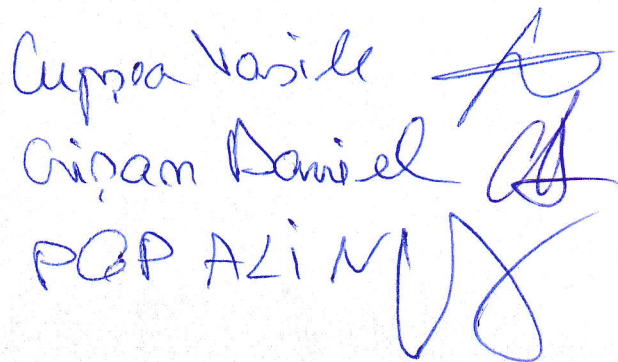 Cupșea Vasile
Crișan Daniel
POP ALIN